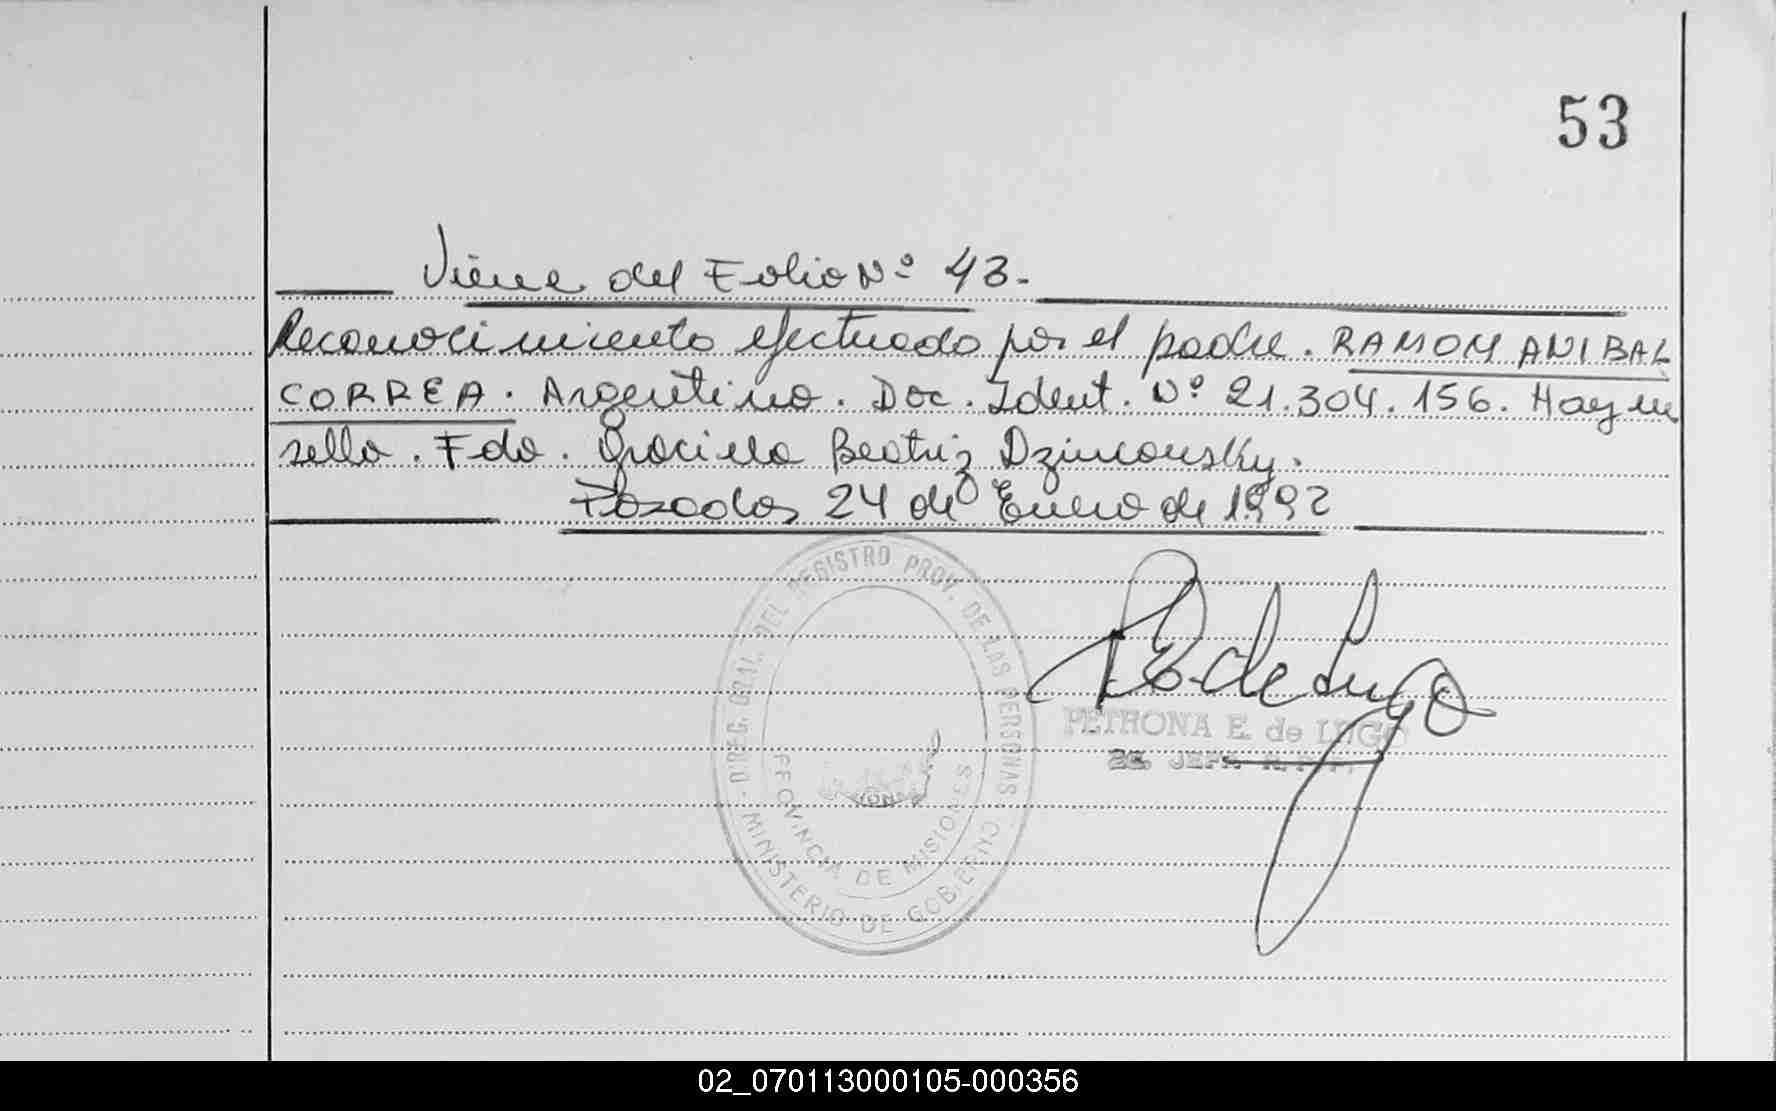 53
Viene del Folio Nº 43.-
Reconocimiento efectuado por el padre. RAMON ANIBAL
CORREA. Argentino. Doc. Ident. Nº 21.304.156. Hay un
sello. Fdo. Graciela Beatriz Dzincousky.
Posadas 24 de Enero de 1992
DIREC. GRAL. DEL REGISTRO PROV. DE LAS PERSONAS
MINISTERIO DE GOBIERNO
PROVINCIA DE MISIONES
P E de Lugo
PETRONA E. de LUGO
JEFA R.P.P.
02_070113000105-000356